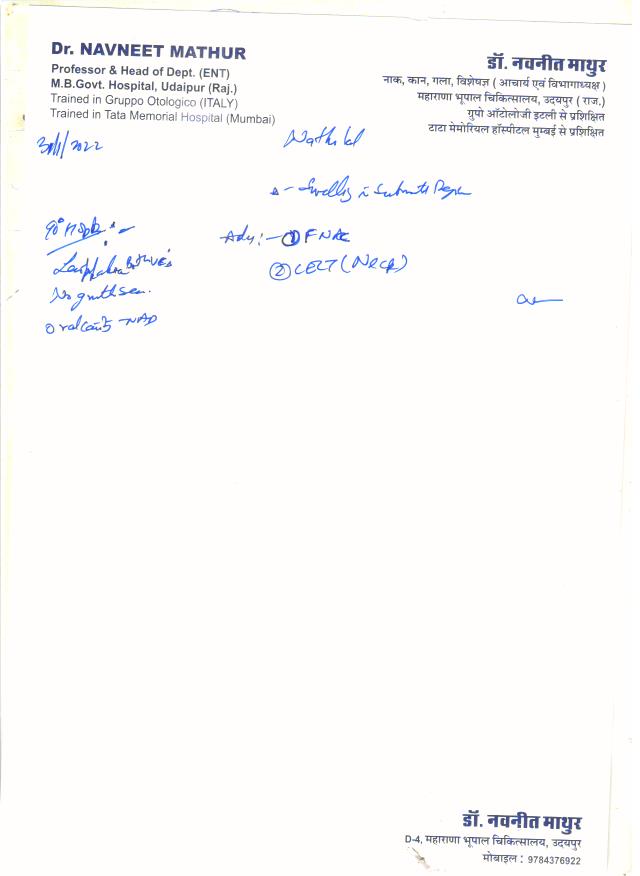 Dr. NAVNEET MATHUR
Professor & Head of Dept. (ENT)
M.B.Govt. Hospital, Udaipur (Raj.)
Trained in Gruppo Otologico (ITALY)
Trained in Tata Memorial Hospital (Mumbai)
डॉ. नवनीत माथुर
नाक, कान, गला, विशेषज्ञ ( आचार्य एवं विभागाध्यक्ष )
महाराणा भूपाल चिकित्सालय, उदयपुर ( राज.)
ग्रुपो ऑटोलोजी इटली से प्रशिक्षित
टाटा मेमोरियल हॉस्पीटल मुम्बई से प्रशिक्षित
2022
Swelling
90°
Adv:- ① FNAC
② CECT (Neck)
No growth seen.
NAD
डॉ. नवनीत माथुर
D-4, महाराणा भूपाल चिकित्सालय, उदयपुर
मोबाइल : 9784376922